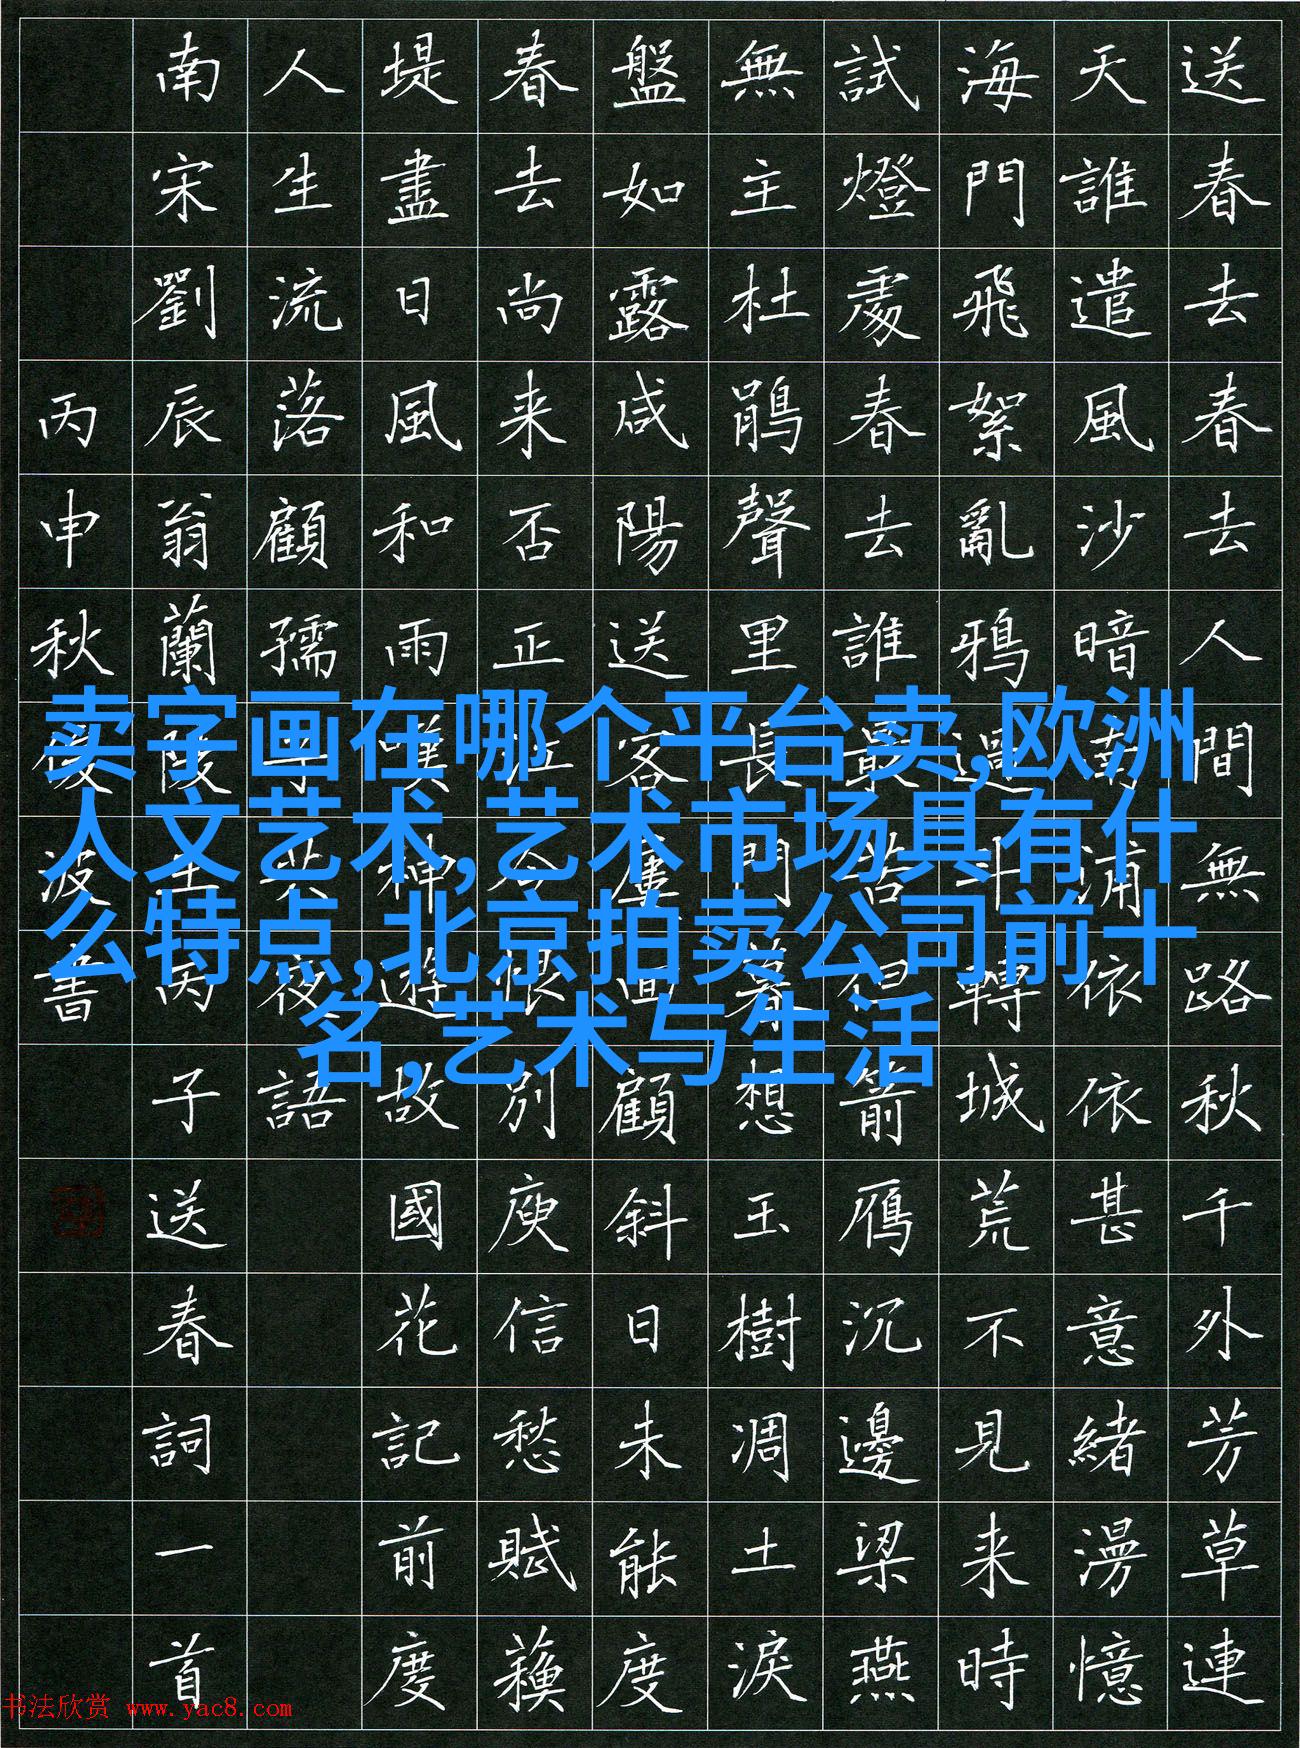 送春去春去人間無路秋千外芳草連
天誰遣風沙暗南浦依依甚意緒漫憶
海門飛絮亂鴉過斗轉城荒不見来時
試燈處春去誰最苦但箭雁沉邊梁燕
無主杜鵑聲里長門暮想玉樹凋土淚
盤如露咸陽送客屢回顧斜日未能度
春去尚来否正江令恨別庾信愁賦蘓
堤盡日風和雨嘆神遊故國花記前度
人生流落顧孺子共夜語
南宋劉辰翁蘭陵王丙子送春詞一首
丙申秋凌波書
卖字画在哪个平台卖,欧洲
人文艺术,艺术市场具有什
么特点,北京拍卖公司前十
名,艺术与生活
书法欣赏 www.yac8.com